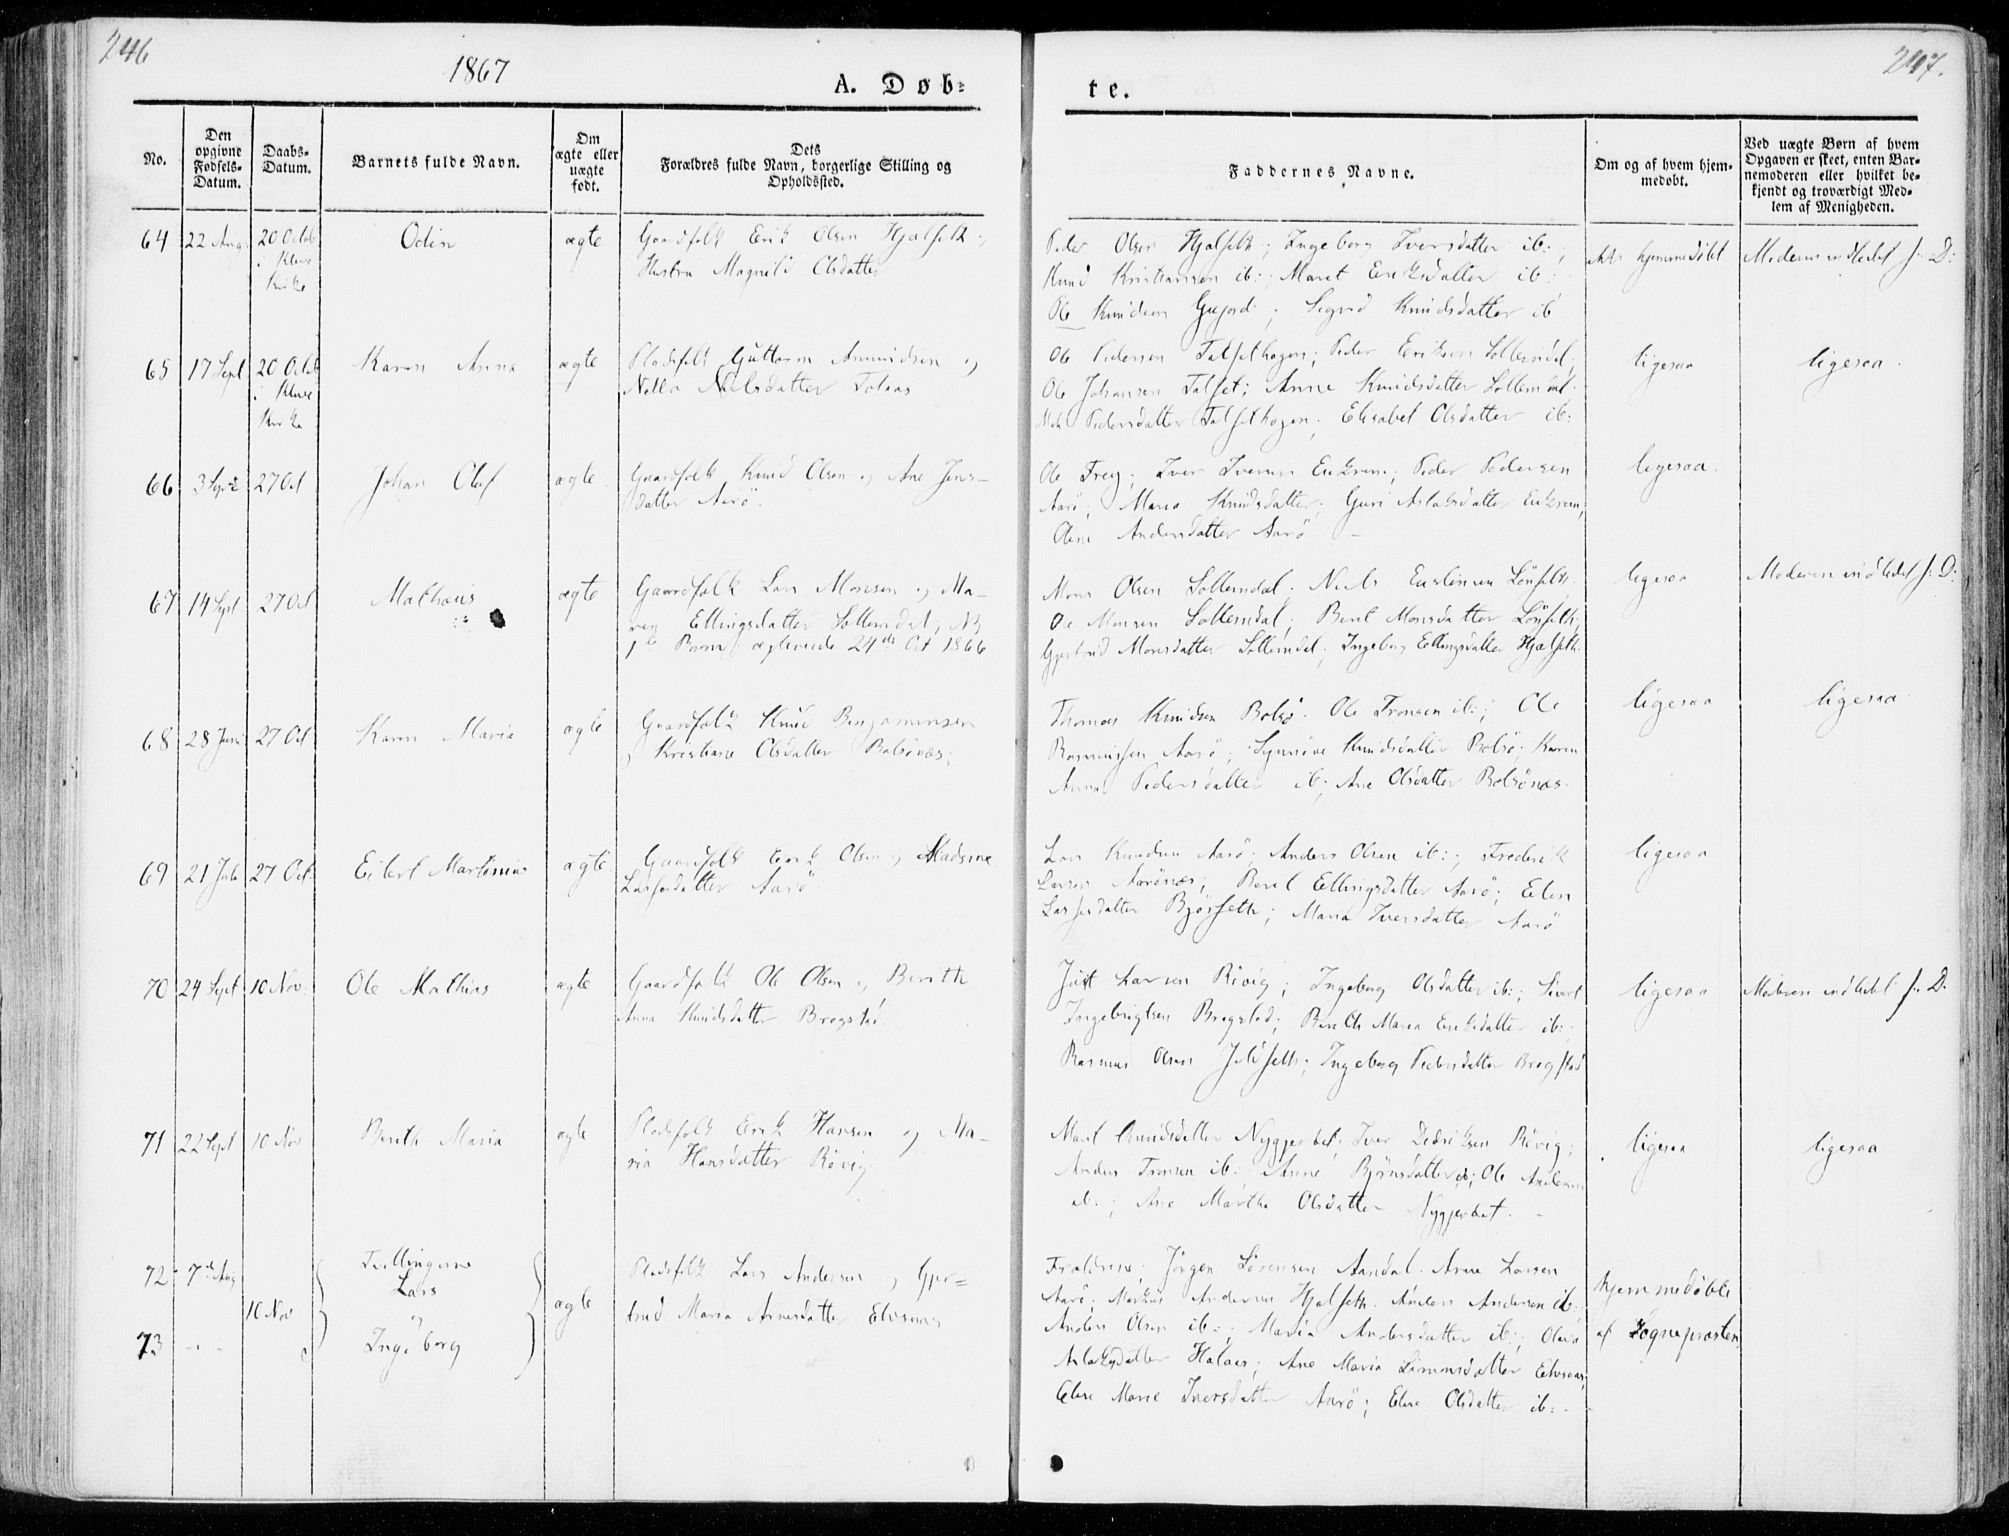 246
1867
A. Døb=
te.
247.
No.
Den opgivne Fødsels-Datum.
Daabs-Datum.
Barnets fulde Navn.
Om ægte eller uægte født.
Dets Forældres fulde Navn, borgerlige Stilling og Opholdssted.
Faddernes Navne.
Om og af hvem hjemmedøbt.
Ved uægte Børn af hvem Opgaven er skeet, enten Barnemoderen eller hvilket bekjendt og troværdigt Medlem af Menigheden.
64 22 Aug. 20 Octob Odin ægte Gaardfolk Erik Olsen Hjelseth
i Kleve
Kirke
Hustru Magnild Olsdatter
Peder Olsen Hjelseth; Ingeborg Iversdatter ib:;
Knud Kristiansen ib:; Maret Eriksdatter ib:
Ole Knudsen Gujord; Sigrid Knudsdatter ib
ikke hjemmedöbt
Moderen indledet s. D:
65 17 Sept 20 Octob Karen Anna ægte Pladsfolk Guttorm Amundsen og
i Kleve
Kirke
Nielsdatter Tolaas
Ole Pedersen Talsethagen; Peder Eriksen Sollemdal;
Ole Johansen Talset; Anne Knudsdatter Sollemdal
Pedersdatter Talsethagen; Elisabet Olsdatter ib:
ligesaa
ligesaa
66 3 27 Oct Johan Oluf ægte Gaardfolk Knud Olsen og Ane Jens-
datter Aarö.
Ole Frey; Iver Iversen Eikrem; Peder Pedersen
Aarö; Maria Knudsdatter; Guri Aslaksdatter Eikrem;
Olene Andersdatter Aarö
ligesaa
67 14 Sept 27 Oct Mathæus ægte Gaardfolk Lars Monsen og Ma-
ren Ellingsdatter Sollemdal; NB
1ste Barn; ægteviede 24de Oct 1866
Mons Olsen Sollemdal; Niels Erlinsen Lönseth
Ole Monsen Sollemdal; Beret Monsdatter Lönseth;
Gjertrud Monsdatter Sollemdal; Ingeborg Ellingsdatter Hjelseth
ligesaa
Moderen indledet s. D:
68 28 Juni 27 Oct Karen Maria ægte Gaardfolk Knud Benjaminsen
og Kristiane Olsdatter Bolsönæs;
Thomas Knudsen Bolsö; Ole Tronsen ib:; Ole
Rasmussen Aarö; Synnöve Knudsdatter Bolsö; Karen
Anna Pedersdatter ib; Ane Olsdatter Bolsönæs.
ligesaa
ligesaa
69 21 Juli 27 Oct. Eilert Martinus ægte Gaardfolk Erik Olsen og Madsine
Lassesdatter Aarö
Lars Knudsen Aarö; Anders Olsen ib:; Frederik
Larsen Aarönæs; Beret Ellingsdatter Aarö; Elen
Lassesdatter Bjørseth; Maria Iversdatter Aarö
ligesaa
70 24 Sept 10 Nov: Ole Mathias ægte Gaardfolk Ole Olsen og Berith
Anna Knudsdatter Bregstad
Just Larsen Rövig; Ingeborg Olsdatter ib:; Sivert
Ingebrigtsen Bregstad; Berith Maria Eriksdatter ib:;
Rasmus Olsen Julseth; Ingeborg Pedersdatter Bregstad
ligesaa
Moderen indledet s. D.
71 22 Sept 10 Nov Berith Maria ægte Pladsfolk Erik Hansen og Ma-
ria Hansdatter Rövig
Marit Knudsdatter Nygjerdet; Iver Didriksen Rövig;
Anders Tronsen ib:; Anne Björnsdatter ib; Ole Andersen
ib:; Ane Marthe Olsdatter Nygjerdet. -
ligesaa
ligesaa
72 7de Aug Tvillingerne
Lars
10 Nov og
73 - . - Ingeborg
ægte
Pladsfolk Lars Andersen og Gjer=
trud Maria Arnesdatter Elvsaas
Forældrene; Jörgen Sörensen Aandal. Arne Larsen
Aarö; Markus Andersen Hjelseth. Anders Andersen ib:
Anders Olsen ib:; Maria Andersdatter ib:; Olava
Aslaksdatter Halaas; Ane Maria Simonsdatter Elvsaas;
Elen Marie Iversdatter Aarö; Elen Olsdatter ib: -
hjemmedöbte
af Sognepræsten